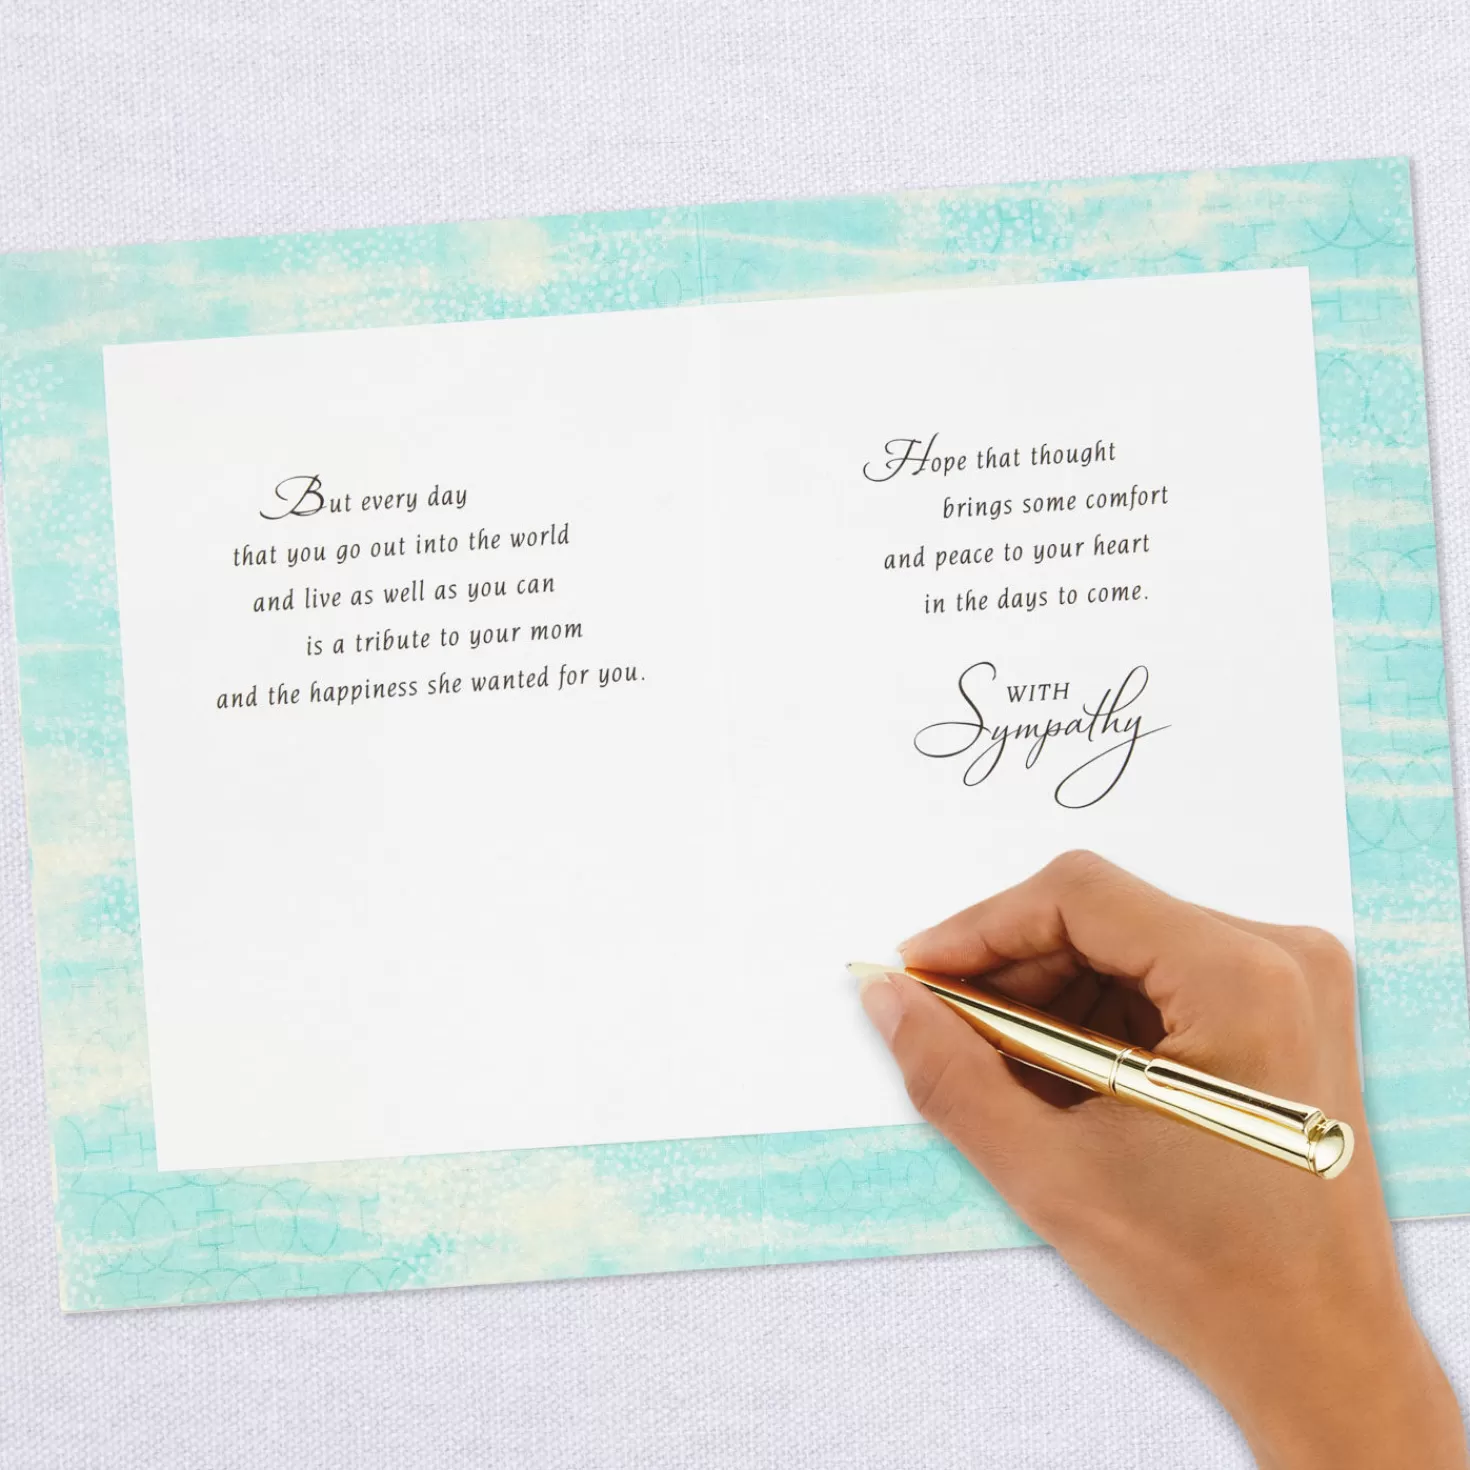 But every day
that you go out into the world
and live as well as you can
is a tribute to your mom
and the happiness she wanted for you.
Hope that thought
brings some comfort
and peace to your heart
in the days to come.
WITH
Sympathy